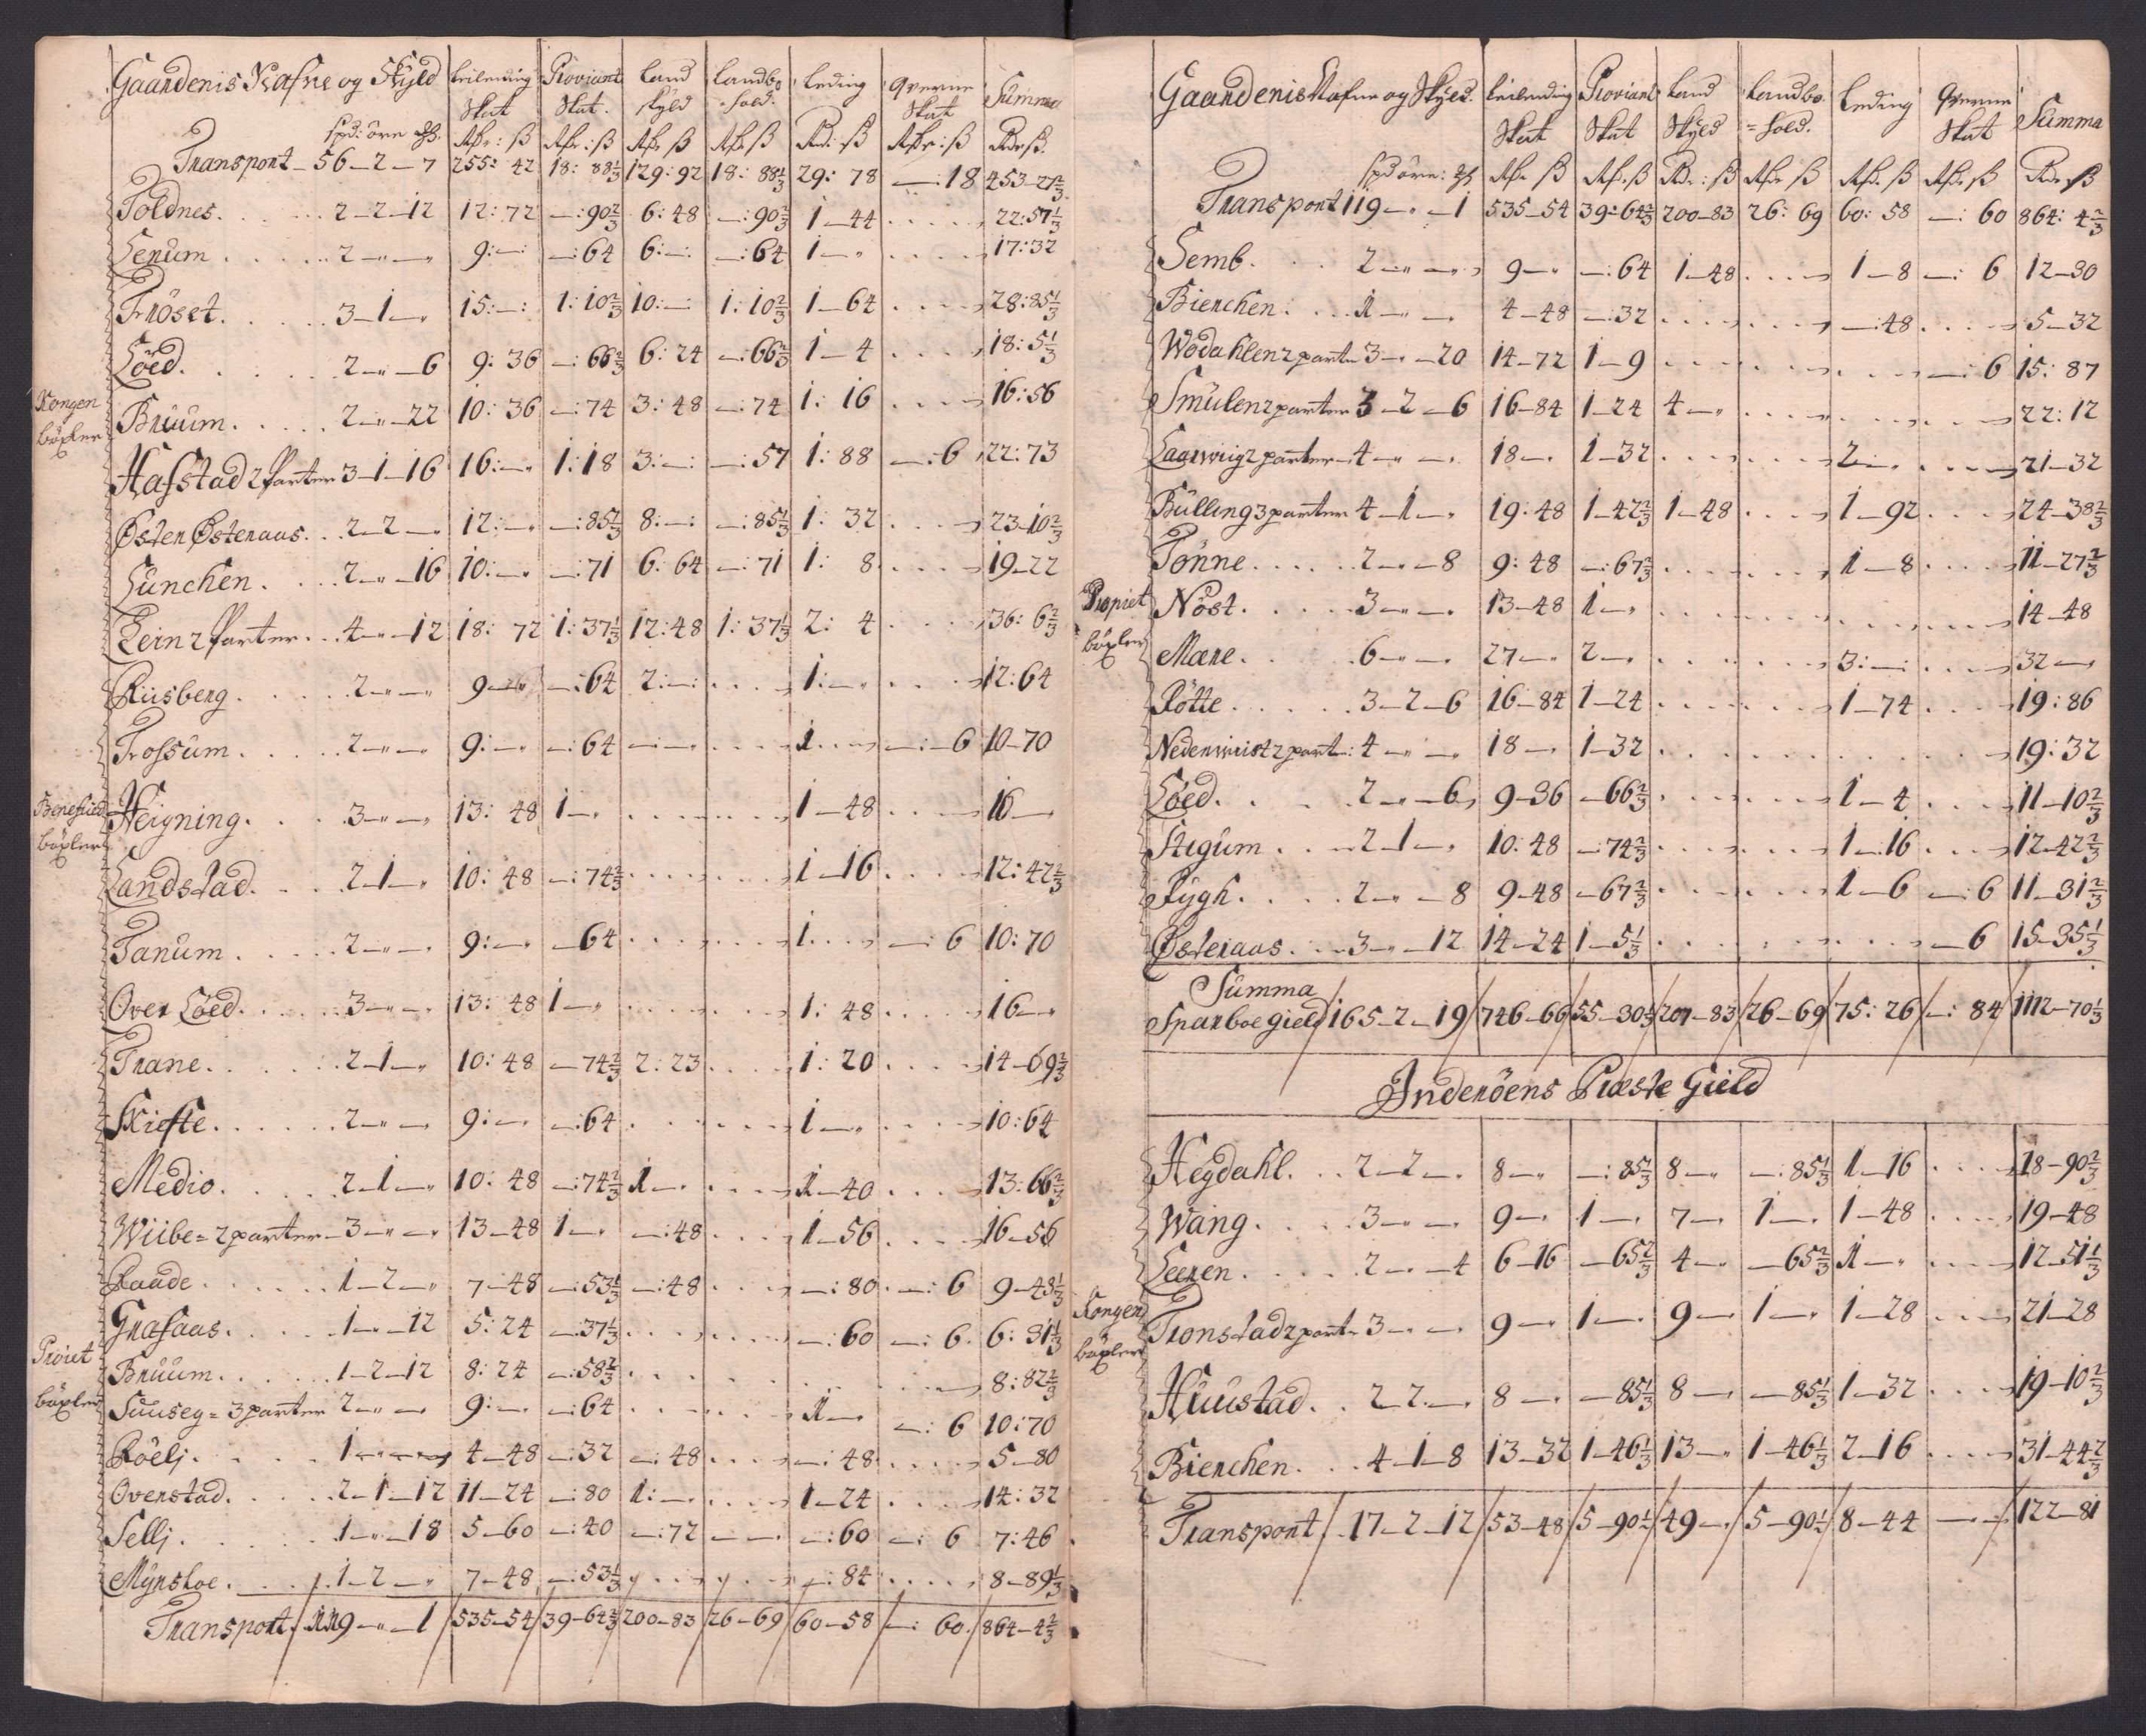 Gaardenis Nafne og Skyld | leilending Skat | Proviant Skat. | Land skyld | Landbo hold. | Leding | Qverne Skat | Summa
spd: öre
Transport 56-2-7 | 255: 42 | 18: 88⅓ | 129: 92 | 18: 88⅓ | 29: 78 | —:18 | 453-27⅔
Toldnes. 2-2-12 | 12: 72 | —:90⅔ | 6: 48 | —:90⅔ | 1-44 | 22:57⅓
Serum 2-"-" | 9:— | —:64 | 6:— | —:64 | 1-" | 17:32
Fröset. 3-1-" | 15:— | 1: 10⅔ | 10:— | 1: 10⅔ | 1-64 | 28:85⅓
Löed. 2-"-6 | 9: 36 | —:66⅔ | 6: 24 | —:66⅔ | 1-4 | 18: 5⅓
Kongen böxler
Bruum. 2-"-22 | 10: 36 | —:74 | 3: 48 | —:74 | 1: 16 | 16:56
Hafstad 2 Parter 3-1-16 | 16:-" | 1:18 | 3:— | —:57 | 1: 88 | —:6 | 22:73
Østen Østenaas. 2-2-" | 12:-" | —:85⅓ | 8:— | —:85⅓ | 1: 32 | 23-10⅔
Sunchen. 2-"-16 | 10:-" | —:71 | 6: 64 | —:71 | 1: 8 | 19-22
Rein 2 Parter 4-"-12 | 18: 72 | 1: 37⅓ | 12:48 | 1: 37⅓ | 2: 4 | 36: 6⅔
Riisberg. 2-"-" | 9-" | —:64 | 2:— | 1:-" | 12:64
Trossum. 2-"-" | 9:-" | —:64 | 1 | —:6 | 10-70
Beneficed böxler
Heigning. 3-"-" | 13: 48 | 1-" | 1-48 | 16-
Landstad. 2-1-" | 10: 48 | —:74⅔ | 1-16 | 12:42⅔
Tanum 2-"-" | 9:-" | -64 | 1 | —:6 | 10:70
Over Löed. 3-"-" | 13: 48 | 1-" | 1: 48 | 16-"
Trane. 2-1-" | 10: 48 | -74⅔ | 2: 23 | 1: 20 | 14-69⅔
Skiefte. 2-"-" | 9:-" | —:64 | 1-" | 10:64
Medio. 2-1-" | 10: 48 | —:74⅔ | 1-" | 1-40 | 13:66⅔
Wiibe= 2 parter 3-"-" | 13-48 | 1-" | —:48 | 1-56 | 16-56
Raade. 1-2-" | 7-48 | —:53⅓ | —:48 | —:80 | —:6 | 9-43⅓
Grafaas. 1-"-12 | 5: 24 | —:37⅓ | —:60 | —:6 | 6: 31⅓
Priet böxler
Bruum. 1-2-12 | 8: 24 | —:58⅔ | 8:82⅔
Suuseg= 3 parter 2-"-" | 9:-" | —:64 | 1-" | —:6 | 10:70
Röelj. 1-"-" | 4-48 | —:32 | —:48 | —:48 | 5-80
Overstad. 2-1-12 | 11-24 | —:80 | 1:-" | 1-24 | 14:32
Sellj. 1-"-18 | 5-60 | —:40 | —:72 | —:60 | —:6 | 7:46
Mynshoe. 1-2-" | 7-48 | —:53⅓ | —:84 | 8-89⅓
Transport. 119-"-1 | 535-54 | 39-64⅔ | 200-83 | 26-69 | 60-58 | —:60 | 864-4⅔
Gaardenis Nafne og Skyld. | leilending Skat | Proviant Skat | Land Skyld | Landbo =hold. | Leding | Qverne Skat | Summa
spd öre:
Transport 119-"-1 | 535-54 | 39:64⅔ | 200-83 | 26: 69 | 60: 58 | —:60 | 864: 4⅔
Semb. 2-"-" | 9-" | —:64 | 1-48 | 1-8 | —:6 | 12-30
Bienchen. 1-"-" | 4-48 | —:32 | —:48 | 5-32
Wodahlen 2 parte 3-"-20 | 14-72 | 1-9 | —:6 | 15: 87
Smulen 2 parter 3-2-6 | 16-84 | 1-24 | 4-" | 22: 12
Laarwiig 2 parter 4-"-" | 18-" | 1-32 | 2-" | 21-32
Bulling 3 parter 4-1-" | 19: 48 | 1-42⅔ | 1-48 | 1-92 | 24-38⅔
Tönne 2-"-8 | 9: 48 | —:67⅔ | 1-8 | 11-27⅔
Propriet böxler
Nöst. 3-"-" | 13-48 | 1-" | 14-48
Mære. 6-"-" | 27-" | 2-" | 3:— | 32-"
Rötte. 3-2-6 | 16-84 | 1-24 | 1-74 | 19:86
Nedenwiist 2 parte: 4-"-" | 18-" | 1-32 | 19:32
Löed. 2-"-6 | 9-36 | -66⅔ | 1-4 | 11-10⅔
Stigum 2-1-" | 10: 48 | -74⅔ | 1-16 | 12-42⅔
Rygh. 2-"-8 | 9-48 | -67⅔ | 1-6 | —:6 | 11-31⅔
Østeraas. 3-"-12 | 14-24 | 1-5⅓ | -6 | 15-35⅓
Summa
Sparboe gield 165-2-19 | 746-66 | 55-30⅓ | 207-83 | 26-69 | 75: 26 | —:84 | 1112-70⅓
Inderöens Præste Gield
Hegdahl. 2-2-" | 8-" | —:85⅓ | 8-" | —:85⅓ | 1-16 | 18-90⅔
Wang. 3-"-" | 9-" | 1-" | 7-" | 1-" | 1-48 | 19-48
Leeren. 2-"-4 | 6-16 | -65⅔ | 4-" | -65⅔ | 1-" | 12-51⅓
Kongen böxler
Tronstad 2 part 3-"-" | 9-" | 1-" | 9-" | 1-" | 1-28 | 21-28
Huustad. 2-2-" | 8-" | -85⅓ | 8-" | -85⅓ | 1-32 | 19-10⅔
Bienchen. 4-1-8 | 13-32 | 1-46⅓ | 13-" | 1-46⅓ | 2-16 | 31-44⅔
Transport. 17-2-12 | 53-48 | 5-90½ | 49-" | 5-90½ | 8-44 | 122-81